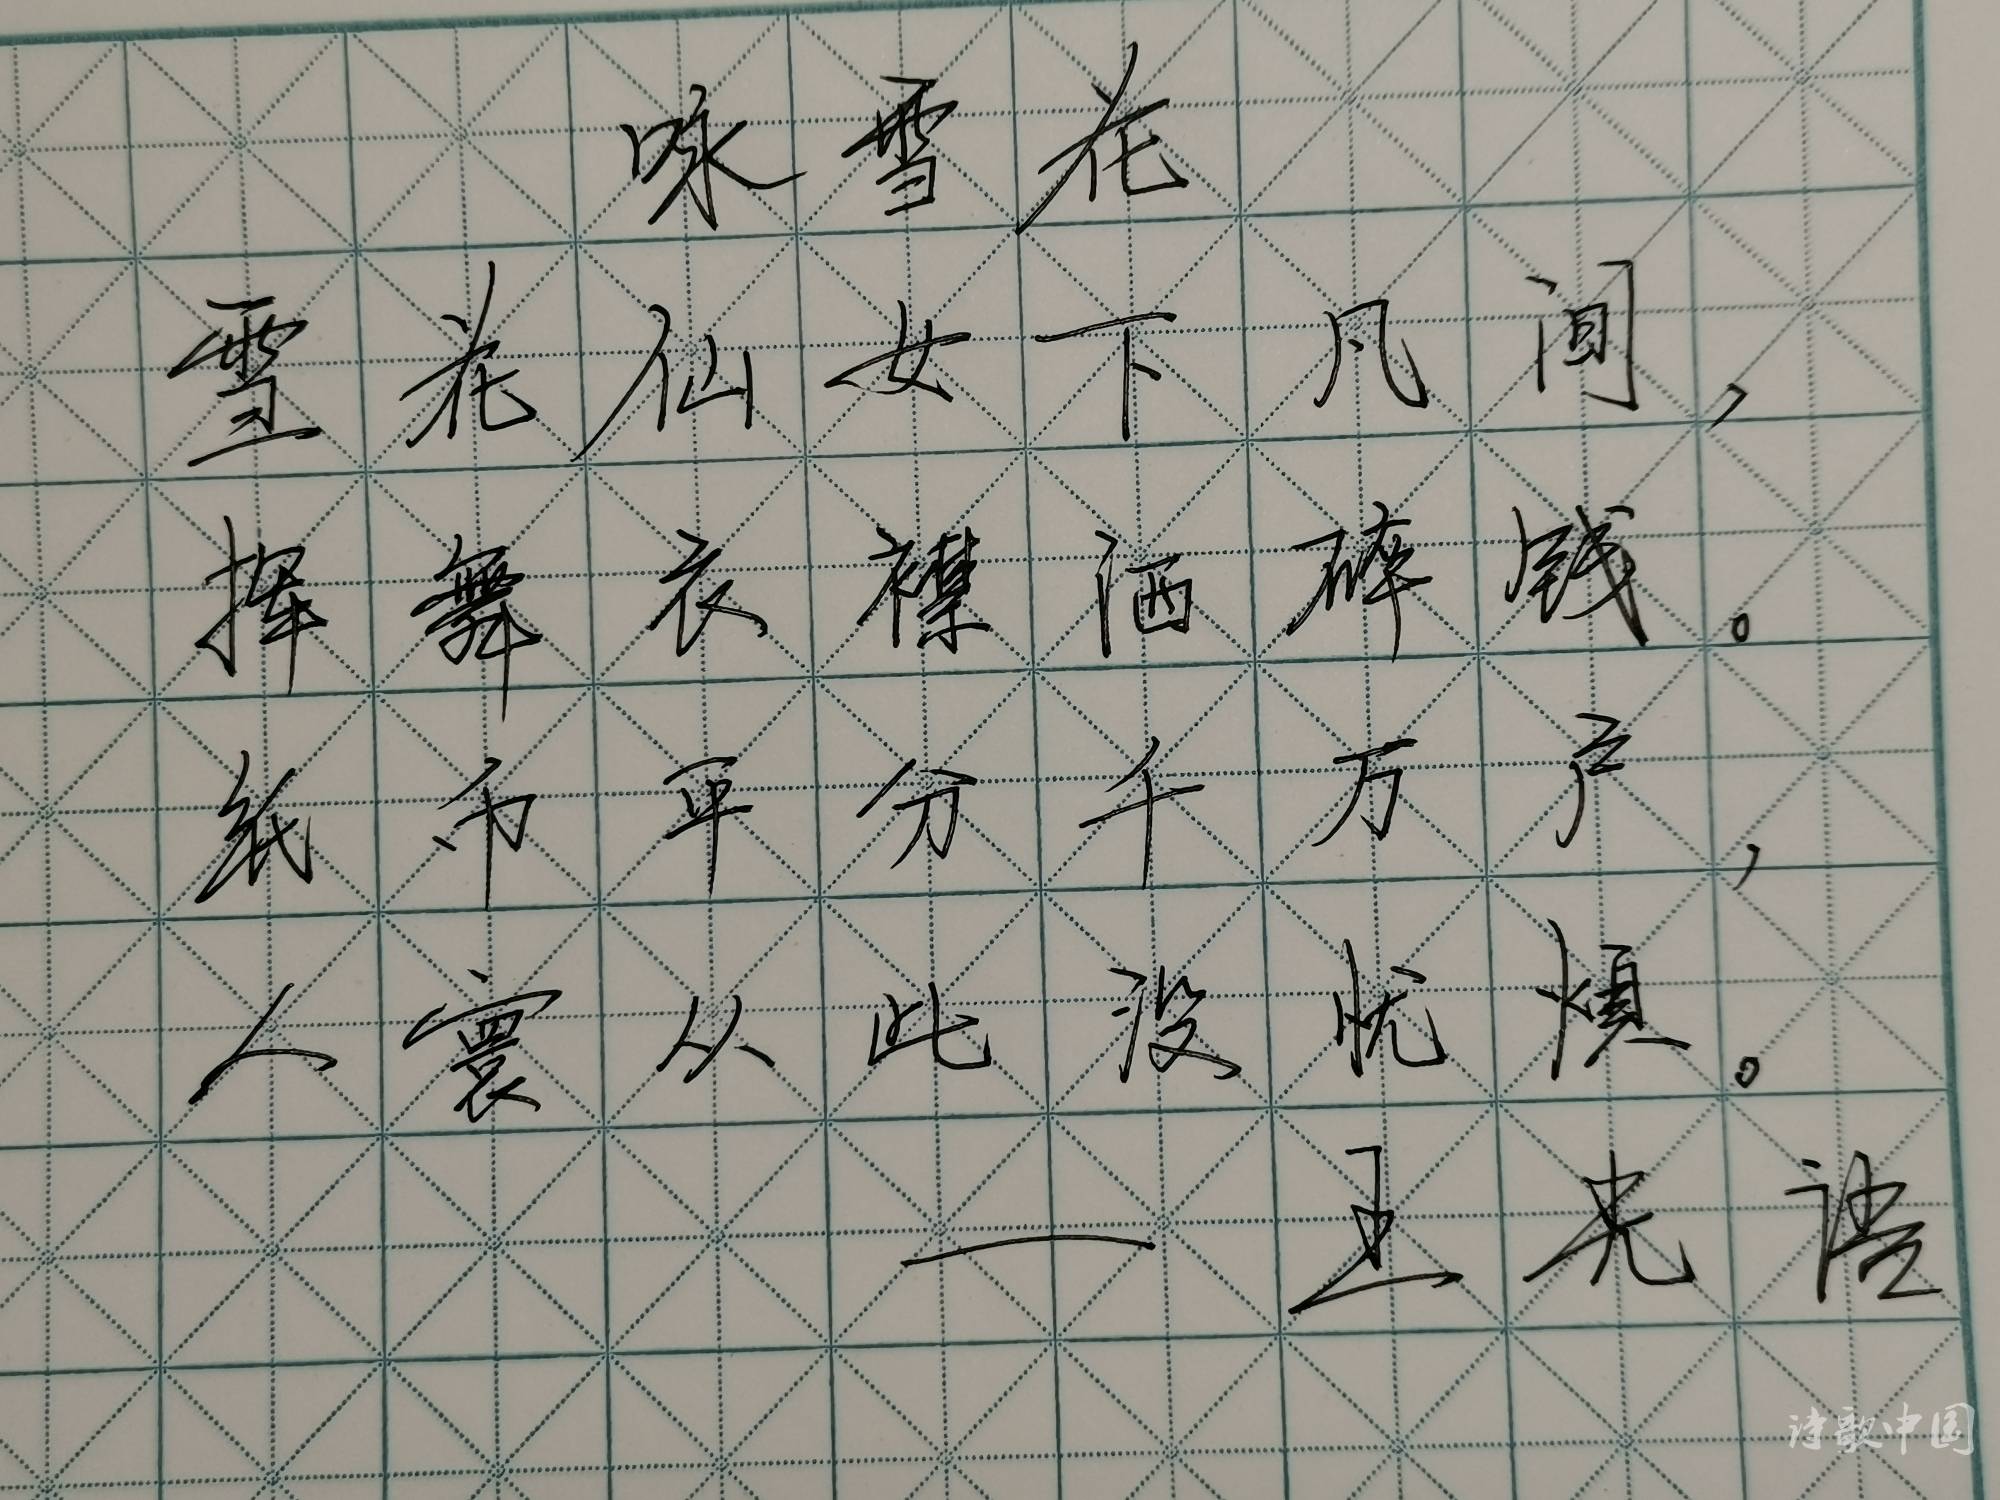 咏雪花
雪花仙女下凡间，
挥舞衣襟洒碎钱。
纸币平分千万户，
人寰从此没忧烦。
——王光语
诗歌中国